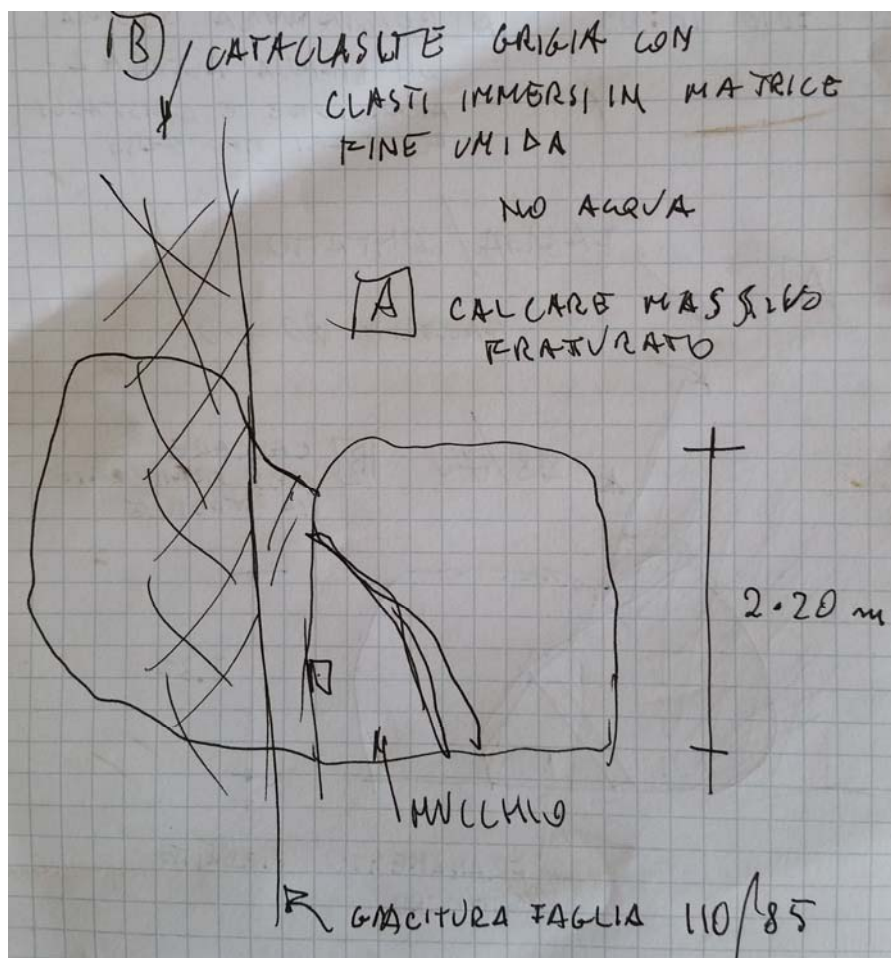 B CATACLASITE GRIGIA CON
CLASTI IMMERSI IN MATRICE
FINE UMIDA
NO ACQUA
A CALCARE MASSIVO
FRATTURATO
2.20 m
MUCCHIO
GIACITURA FAGLIA 110/85